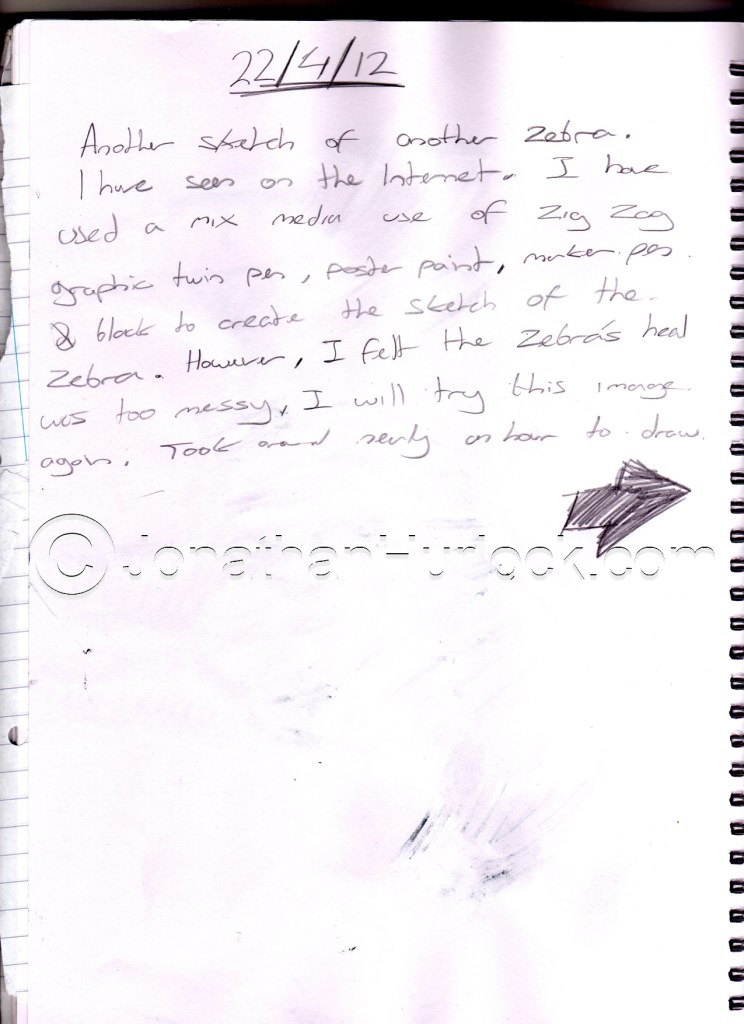 22/4/12
Another sketch of another Zebra.
I have seen on the Internet. I have
used a mix media use of Zig Zag
graphic twin pen, poster paint, marker pen.
& black to create the sketch of the
Zebra. However, I felt the Zebra's head
was too messy, I will try this image
again. Took around nearly an hour to draw.
© JonathanHurlock.com